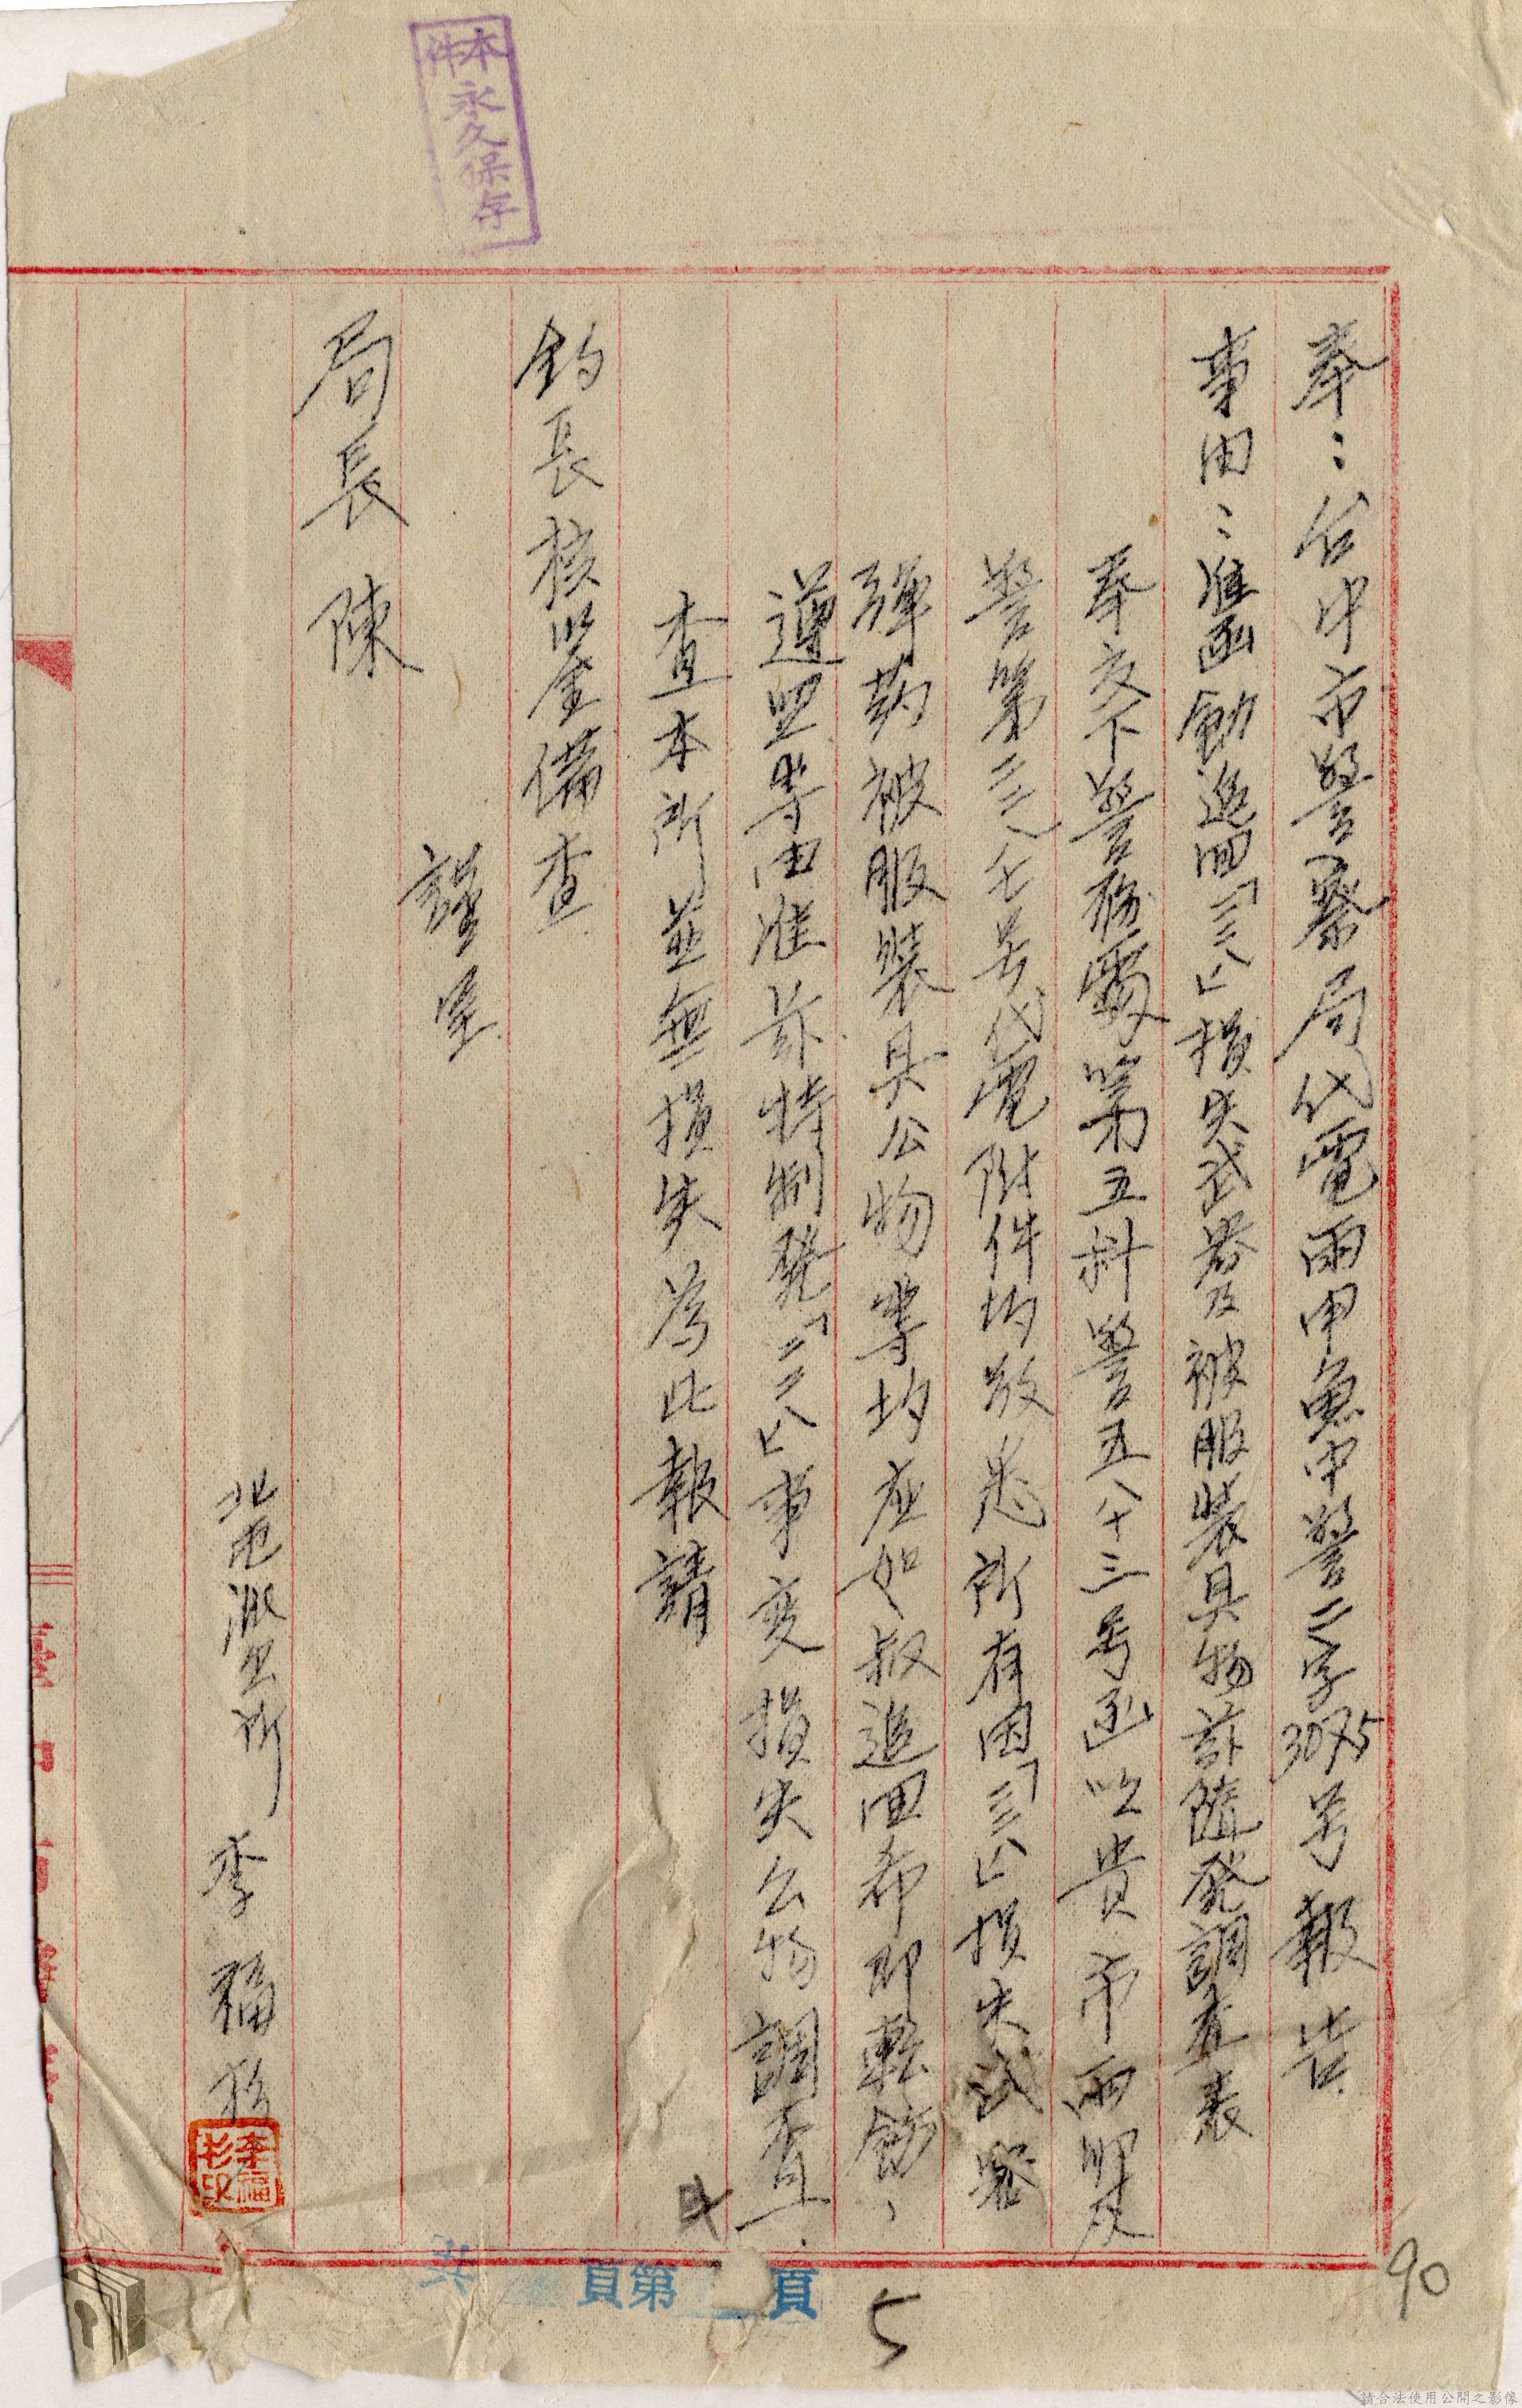 本件永久保存
奉：台中市警察局代電雨申魚中警二字3075号報告
事由：准函飭追回「二二八」損失武器及被服裝具物玆隨発調查表
奉交下警務處第五科警五八十三号函以貴市雨
警第三八七号代電附件均敬悉所有因「二二八」損失武器
弾葯被服裝具公物等均應如报追回希即転飭、
遵照等由准玆特制発「二二八」事変損失公物調查.
查本所並無損失為此報請
鈞長核鉴備查
謹呈
局長陳
北屯派出所 李福杉
李福杉印
共 頁第 頁
5
90
請合法使用公開之影像